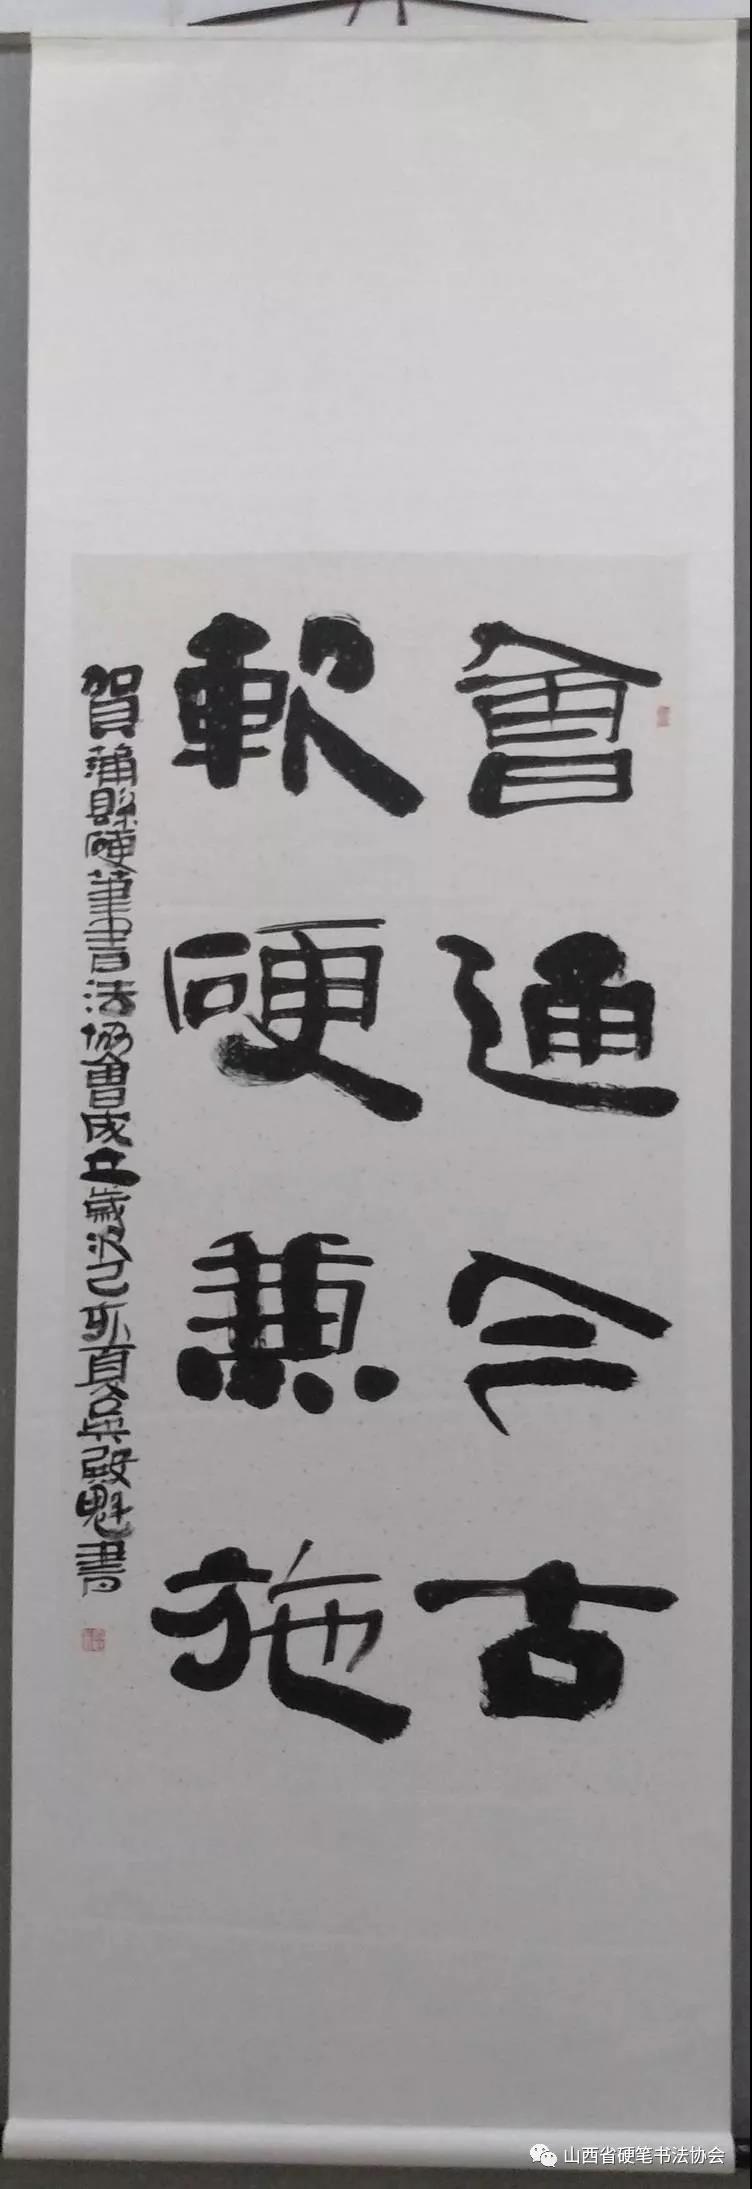 會通今古
軟硬兼施
賀蒲縣硬筆書法協會成立歲次己亥夏吳殿魁書
山西省硬笔书法协会